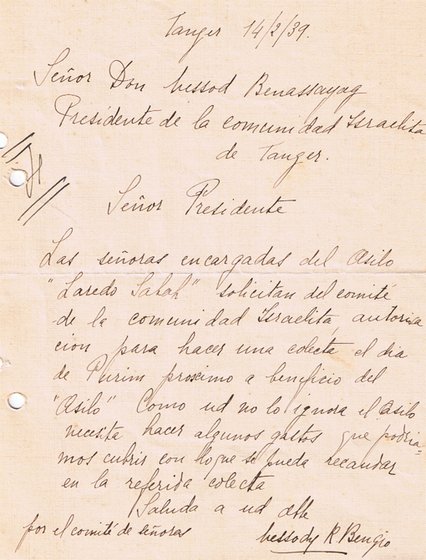 Tanger 14/2/39.
Señor Don Messod Benassayag
Presidente de la comunidad Israelita
de Tanger.
Señor Presidente
Las señoras encargadas del Asilo
"Laredo Sabah" solicitan del comité
de la comunidad Israelita, autoriza
cion para hacer una colecta el dia
de Purim proximo a beneficio del
"Asilo" Como ud no lo ignora el Asilo
necesita hacer algunos gastos que podria-
mos cubrir con lo que se pueda recaudar
en la referida colecta
Saluda a ud
por el comité de señoras
Messody R Bengio